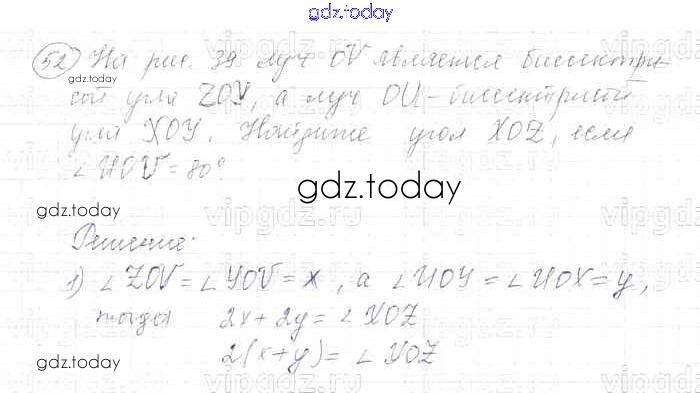 gdz.today
52 На рис. 39 луч OV является биссектри-
сой угла ZOY, а луч OU - биссектрисой
угла XOY. Найдите угол XOZ, если
∠UOV = 80°
gdz.today
gdz.today
gdz.today
Решение:
1) ∠ZOV = ∠YOV = x, а ∠UOY = ∠UOX = y,
тогда 2x + 2y = ∠XOZ
2(x+y) = ∠XOZ
gdz.today
vipgdz.ru